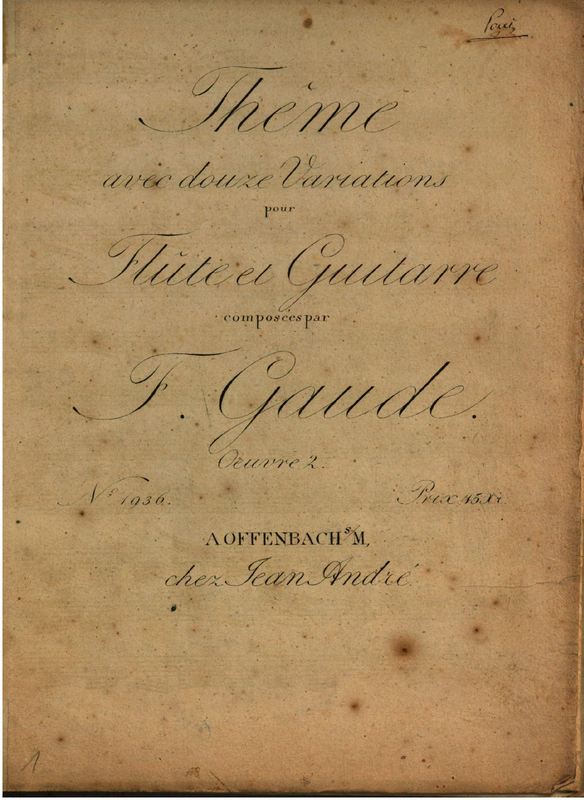 Thême
avec douze Variations
pour
Flûte et Guitarre
composées par
F. Gaude.
Oeuvre 2.
Nº 1936. Prix 45 Xr
A OFFENBACH s/M,
chez Jean André.
1